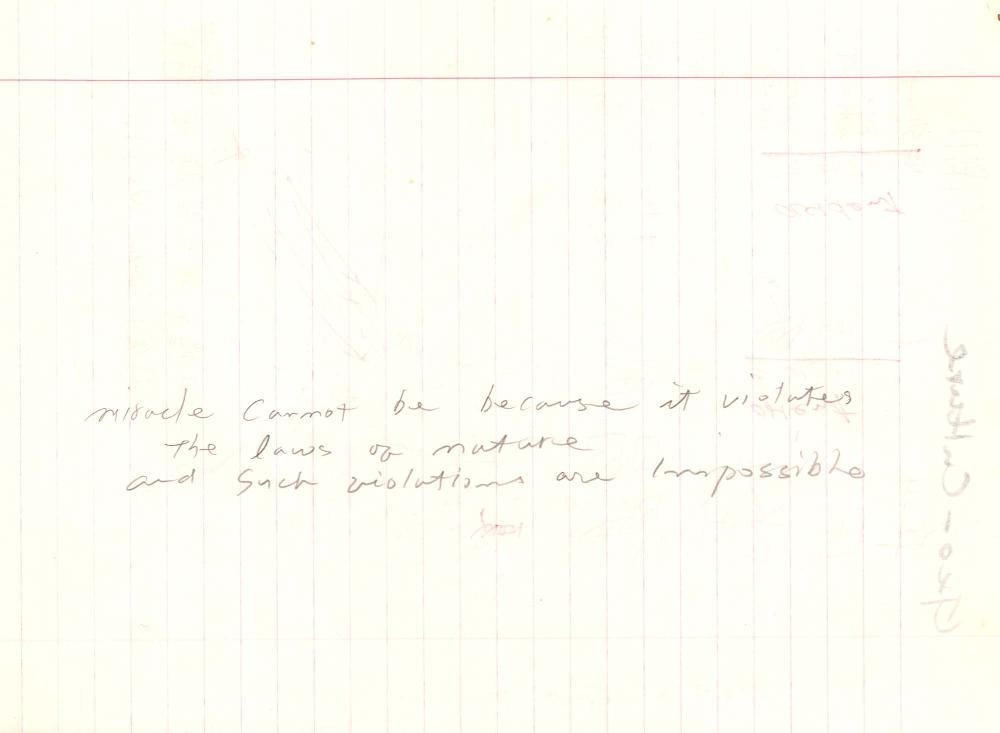 miracle cannot be because it violates
the laws of nature
and such violations are impossible